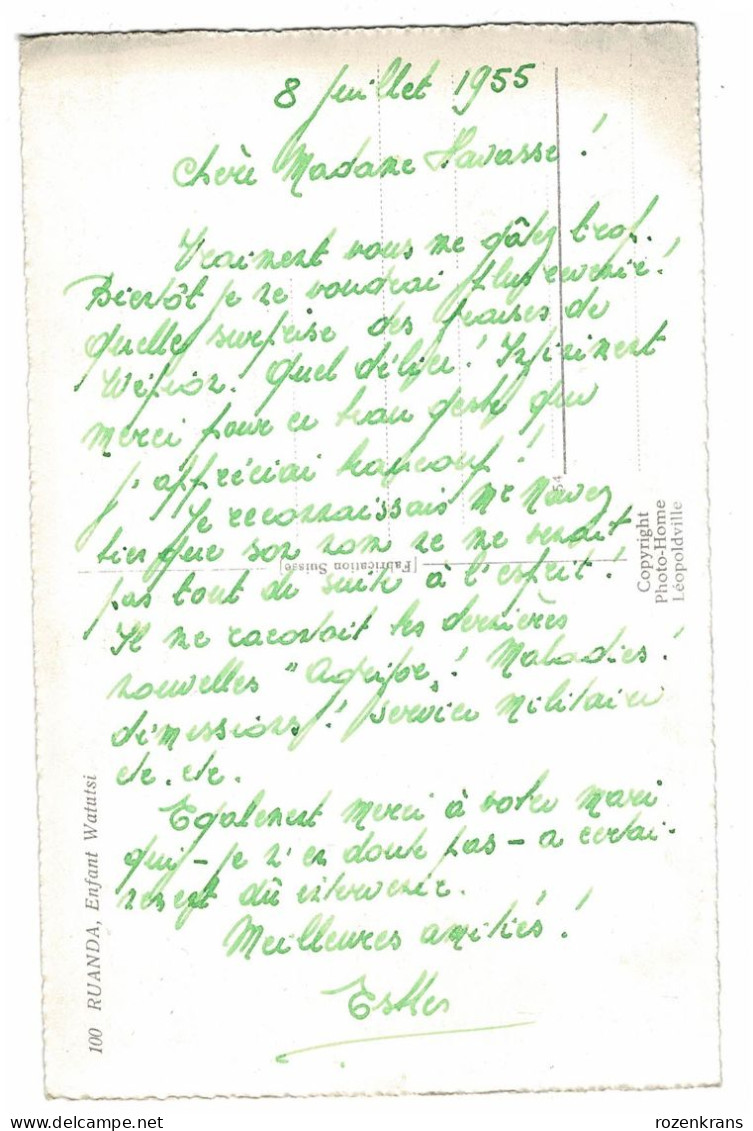 8 juillet 1955
Chère Madame Havasse !
Vraiment vous me gâtez trop.
Bientôt je ne voudrai plus revenir !
quelle surprise des fraises de
Wépion. Quel délice ! Infiniment
merci pour ce beau geste que
j'appréciai beaucoup !
Je reconnaissais Mr Navez
bien que son nom ne me venait
pas tout de suite à l'esprit !
Il me racontait les dernières
nouvelles "Agrifor" ! Maladies !
démissions ! Service militaire
etc. etc.
Egalement merci à votre mari
qui - je n'en doute pas - a certai-
nement dû intervenir.
Meilleures amitiés !
Esther
100 RUANDA, Enfant Watutsi
Fabrication Suisse
54
Copyright
Photo-Home
Léopoldville
rozenkrans